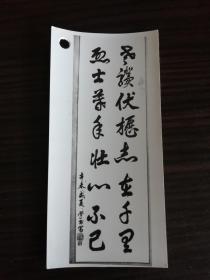 老骥伏枥志在千里
烈士暮年壮心不已